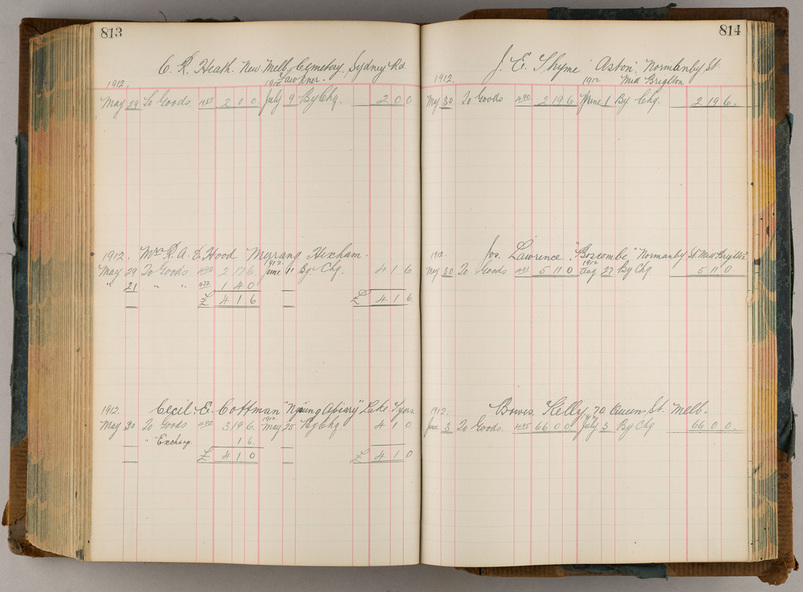 813
C. R. Heath. New Melb. Cemetery, Sydney Rd
Fawkner.
1912. 1912
May 29 To Goods 2 0 0 July 9 By Chq. 2 0 0
1912. Mrs R. A. E. Hood "Merrang" Hexham.
1912
May 29 To Goods 2 17 6 June 11 By Chq. 4 1 6
" 21 " " 1 4 0
£ 4 1 6 £ 4 1 6
1912. Cecil E. Cottman Apiary" Lake Tyers
1912
May 30 To Goods 3 19 6 May 25 By Chq 4 1 0
" Exchge. 1 6
£ 4 1 0 £ 4 1 0
814
J. E. Thyme "Aston" Normanby St
1912. 1912 Mid Brighton
May 30 To Goods 2 19 6 June 1 By Chq. 2 19 6
1912. Jos. Lawrence "Boscombe" Normanby St Mid Brighton
1912
May 30 To Goods 5 11 0 Aug 27 By Chq 5 11 0
1912. Bowes Kelly, 70 Queen St. Melb.
1912
June 3 To Goods 66 0 0 July 3 By Chq 66 0 0